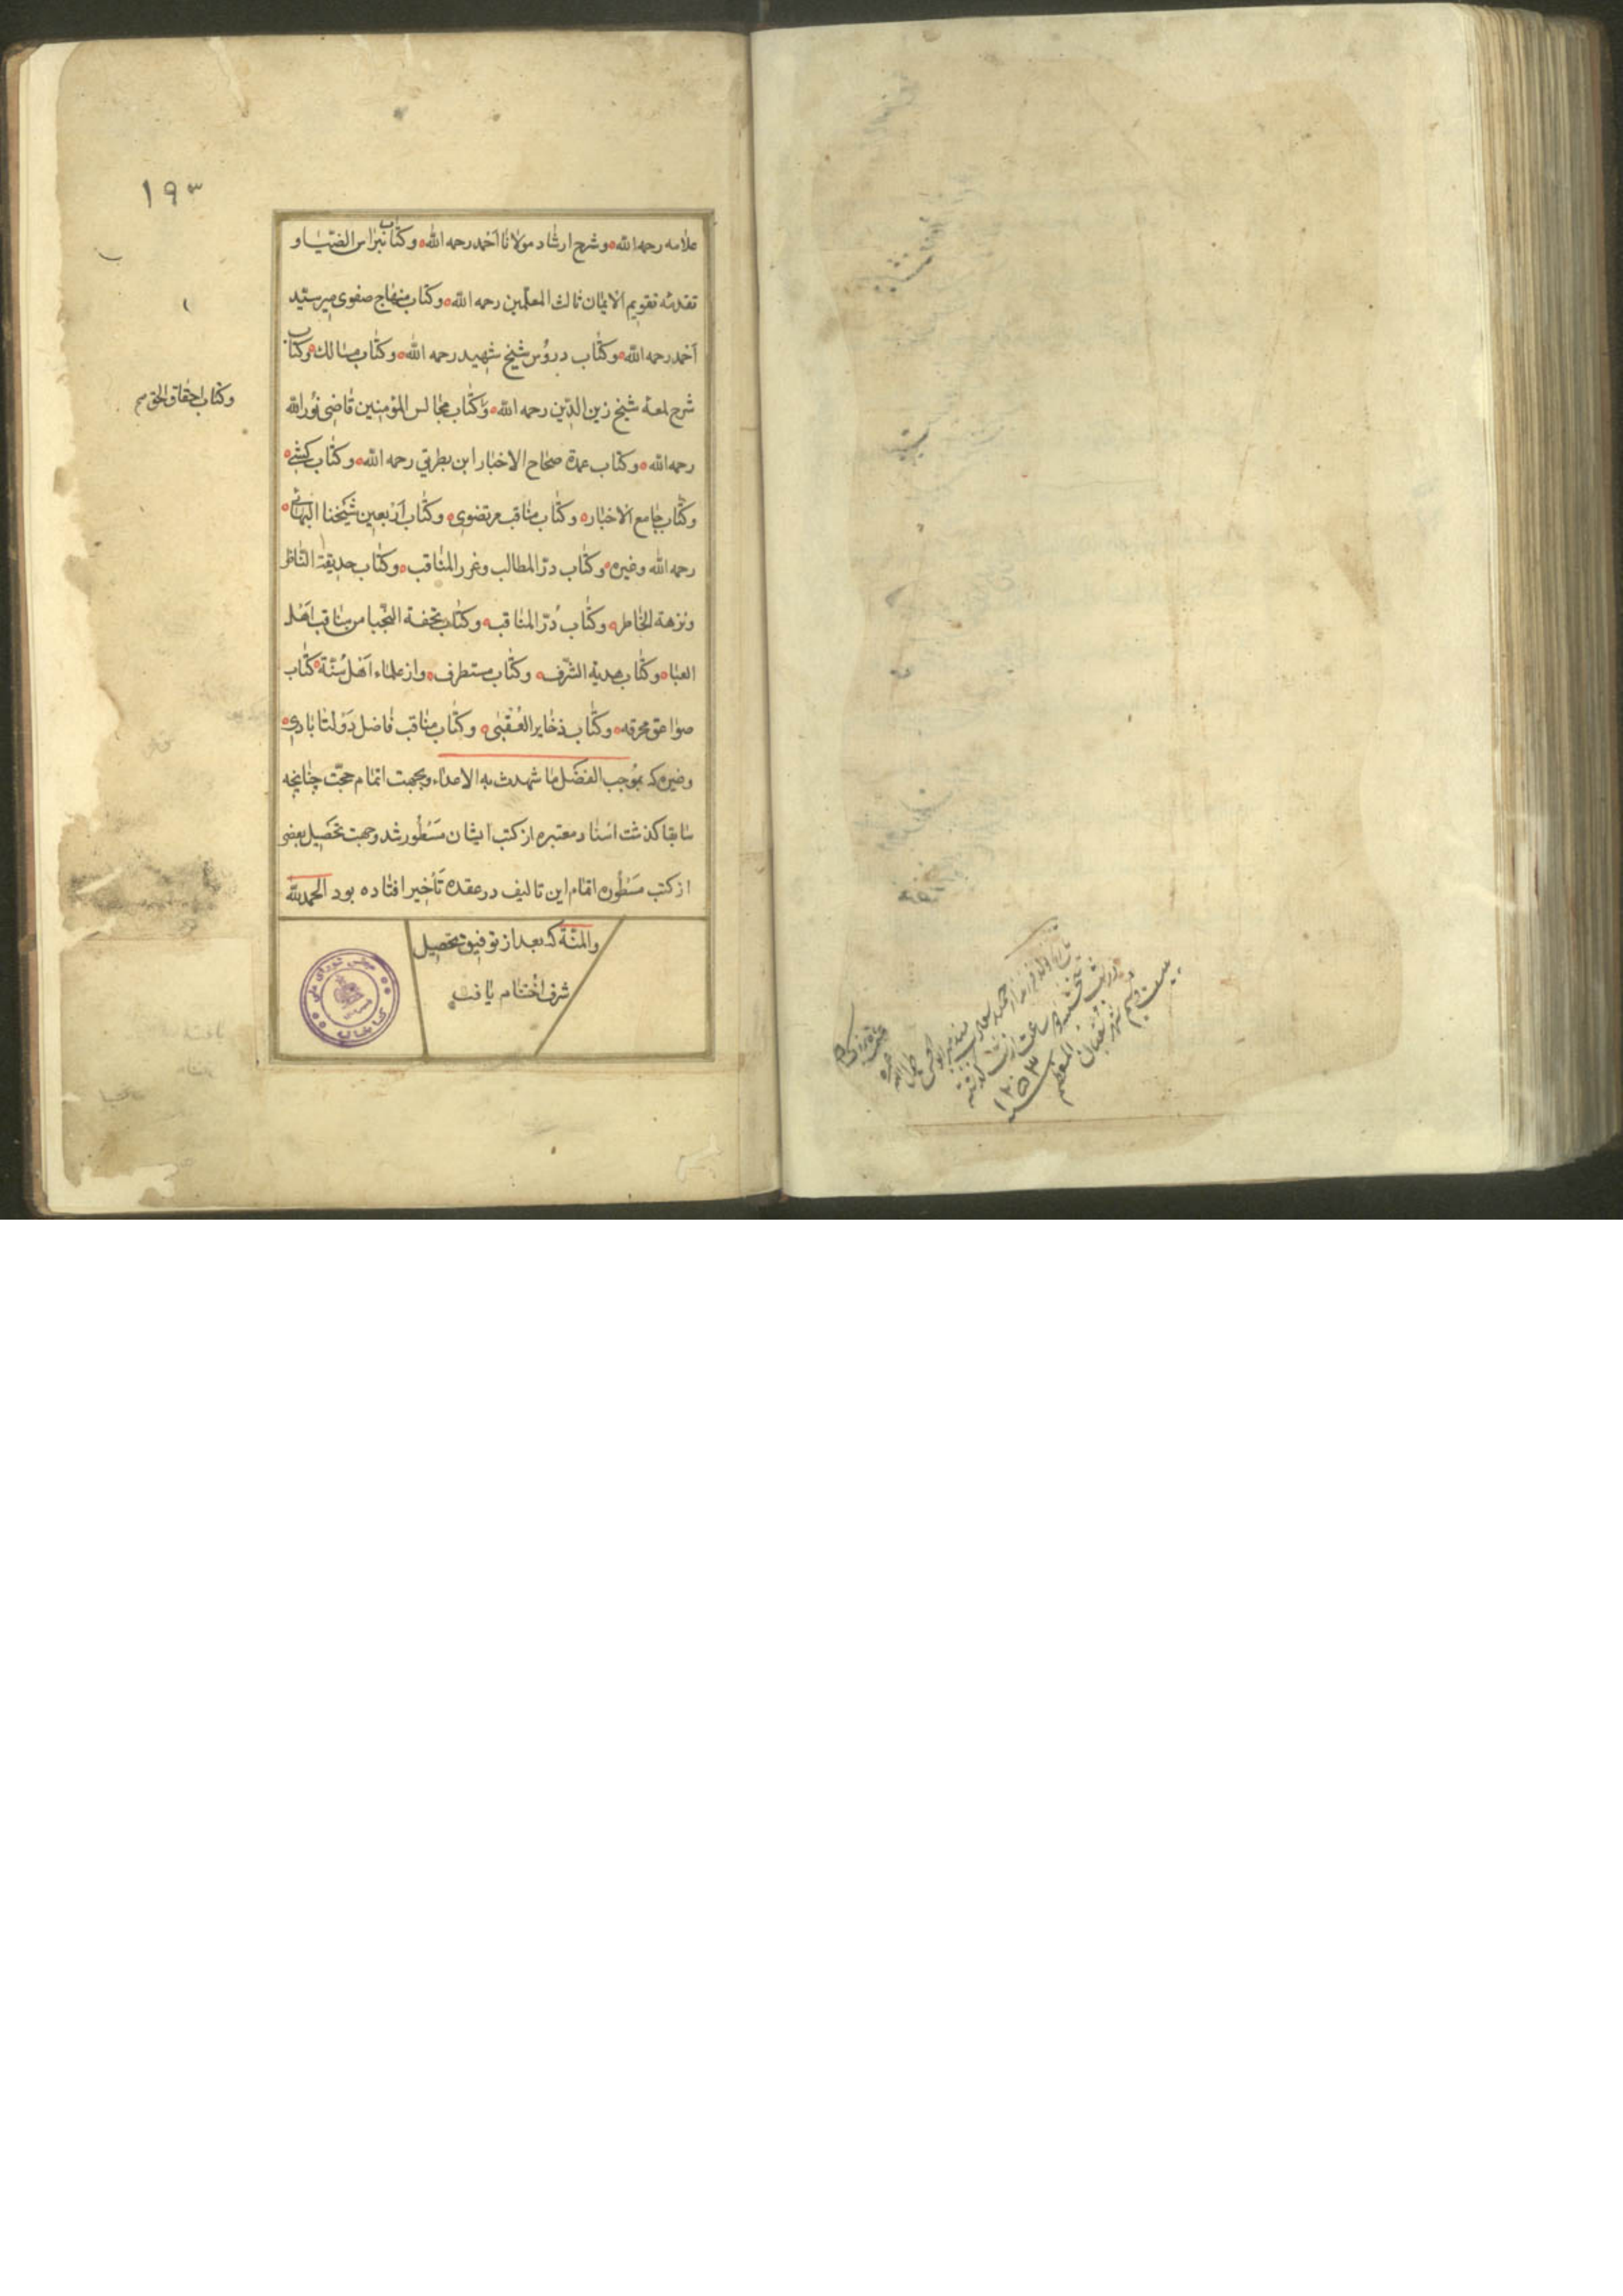 علامه رحمه الله و شرح ارشاد مولانا احمد رحمه الله و کتاب نبراس الضیا و
تقدمه تقویم الایمان ثالث المعلمین رحمه الله و کتاب منهاج صفوی میر سید
احمد رحمه الله و کتاب دروس شیخ شهید رحمه الله و کتاب مسالک و کتاب
شرح لمعه شیخ زین الدین رحمه الله و کتاب مجالس المؤمنین قاضی نور الله
رحمه الله و کتاب عمدة صحاح الاخبار ابن بطریق رحمه الله و کتاب کشی
و کتاب جامع الاخبار و کتاب مناقب مرتضوی و کتاب اربعین شیخنا البهائی
رحمه الله و غیره و کتاب درّ المطالب و غرر المناقب و کتاب حدیقة الناظر
و نزهة الخاطر و کتاب دُرّ المناقب و کتاب تحفة النجبا من مناقب اهل
العبا و کتاب هدیة الشرف و کتاب مستطرف و از علماء اهل سُنّة کتاب
صواعق محرقه و کتاب ذخایر العُقبی و کتاب مناقب فاضل دولتابادی
و غیره که بموجب الفضل ما شهدت به الاعداء و بجهت اتمام حجّت چنانچه
سابقا کذشت اسناد معتبره از کتب ایشان مسطور شد و جهت تحصیل بعضی
از کتب مسطوره اتمام این تالیف در عقده تأخیر افتاده بود الحمد لله
و المنّة که بعد از توفیق تحصیل
شرف اختتام یافت
و کتاب احقاق الحق
۱۹۳
مجلس شورای ملی
کتابخانه
شعبان المعظم
۱۲۵۳